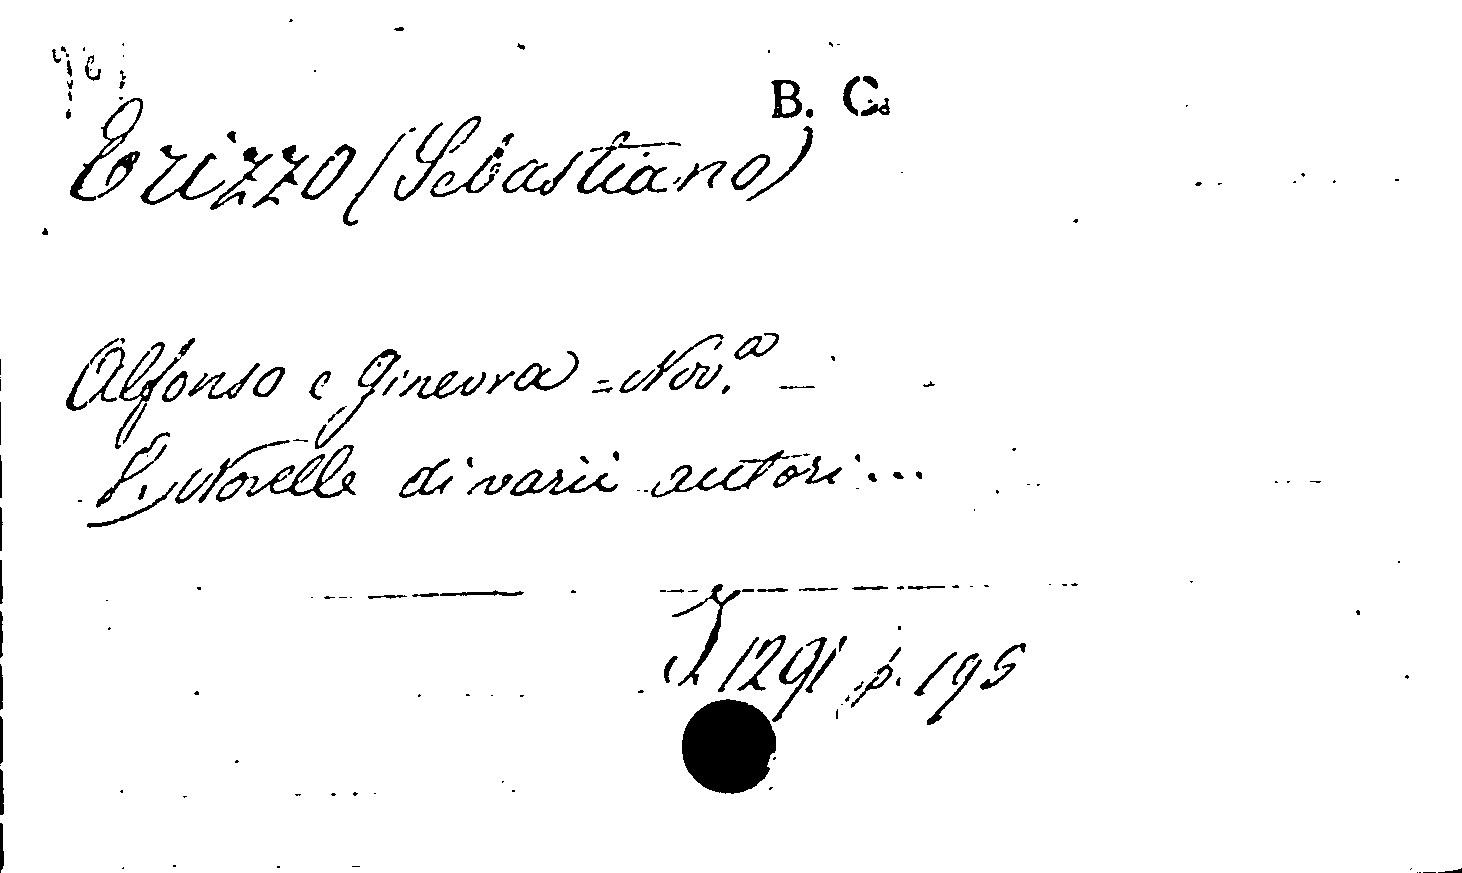 B. C.
Erizzo (Sebastiano)
Alfonso e Ginevra = Nov.a —
V. Novelle di varii autori...
I 1291 p. 195